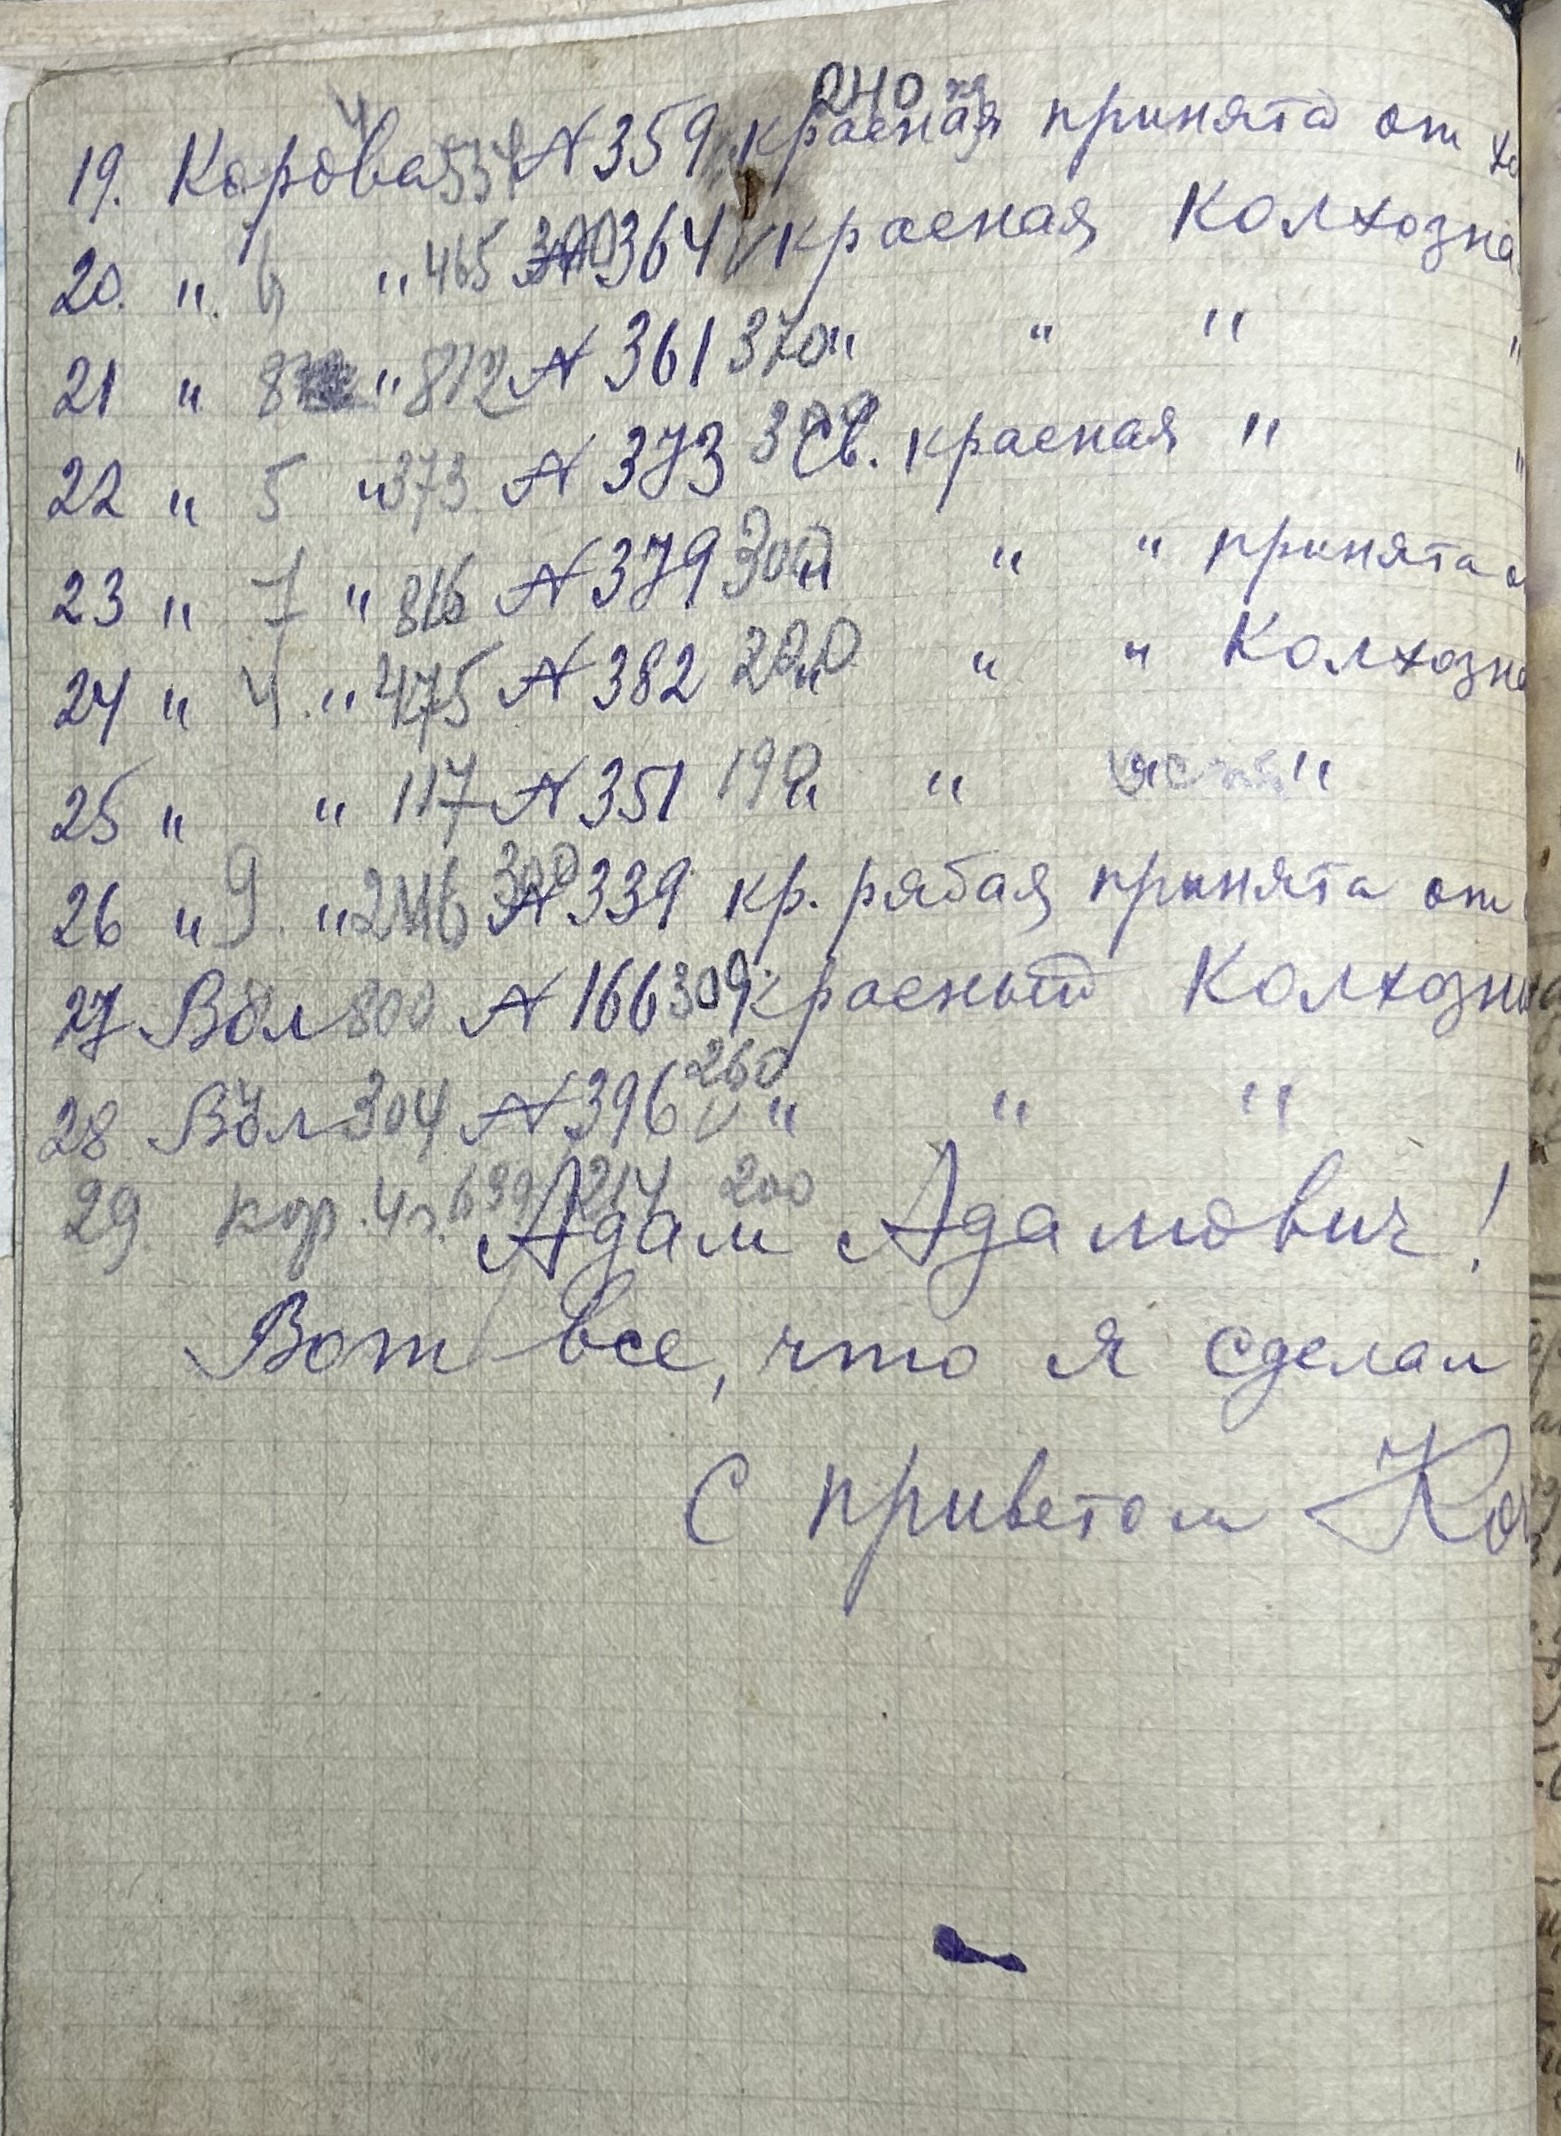 240 кг
4
19. Корова 537 № 359 красная принята от
20. " 6 " 465 300 № 364 V красная Колхозна
21 " 8 " 812 № 361 370 " " " "
22 " 5 " 373 № 373 Св. красная " "
23 " 7 " 816 № 379 300 " " " принята о
24 " 4. " 475 № 382 200 " " " Колхозна
25 " " 117 № 351 190 " " "
26 " 9. " 246 300 № 339 кр. рябая принята от
27 Вол 800 № 166 309 красный Колхозн
28 Вол 304 № 396 260 V " " "
29. кор. 4 г. 639 1214 200
Адам Адамович!
Вот все, что я сделал
С приветом